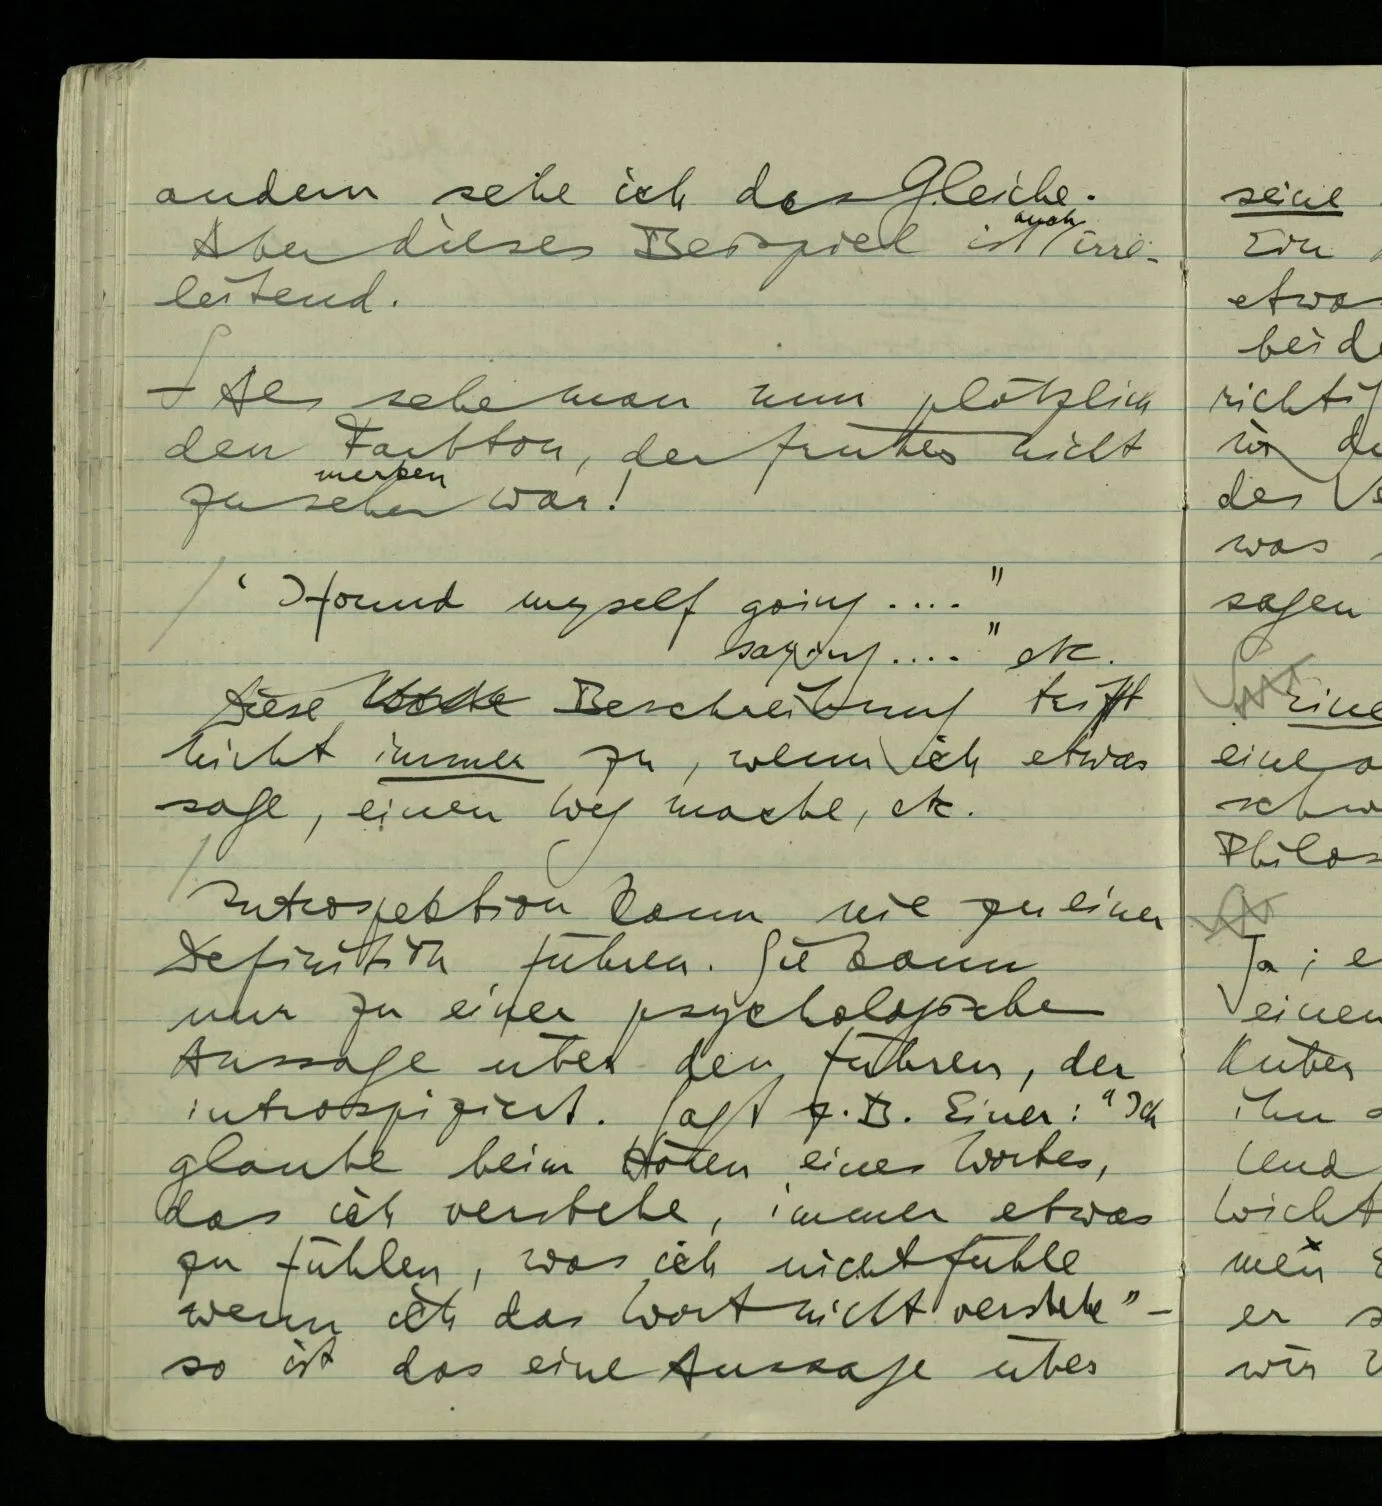 andern sehe ich das Gleiche.
Aber dieses Beispiel ist auch irre-
leitend.
Als sehe man nun plötzlich
den Farbton, der früher nicht
merken
zu sehen war!
‘I found myself going ....”
saying ....” etc.
Diese Beschreibung trifft
nicht immer zu, wenn ich etwas
sage, einen Weg mache, etc.
Introspektion kann nie zu einer
Definition führen. Sie kann
nur zu einer psychologische
Aussage über den führen, der
introspiziert. Sagt z.B. Einer: “Ich
glaube beim Hören eines Wortes,
das ich verstehe, immer etwas
zu fühlen, was ich nicht fühle
wenn ich das Wort nicht verstehe” –
so ist das eine Aussage über
seine
Ein
etwas
beide
richtig
in
des
was
sagen
eine
eine
Philos
Ja; e
einen
über
ihn
Und
wicht
mein
er s
wir